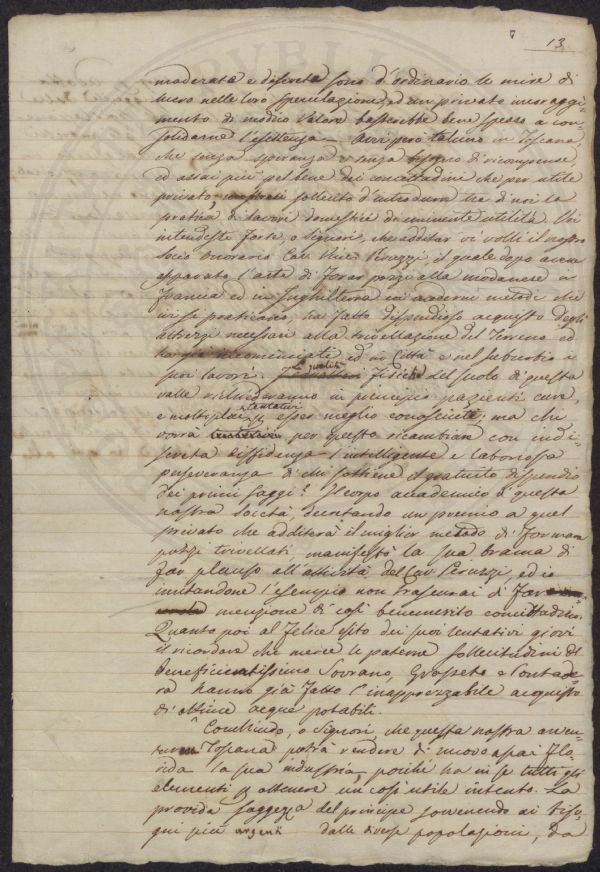 7 13
moderata e discreta sono d'ordinario le mire di
lucro nelle loro speculazioni, ed un privato incoraggi-
mento di modico valore basterebbe bene spesso a con-
solidarne l'esistenza. Avvi però taluno in Toscana,
che senza speranza e senza bisogno di ricompense
ed assai più pel bene dei concittadini che per utile
privato, sollecito d'introdurre tra di noi la
pratica di lavori domestici di imminente utilità. Voi
intendeste forse, o Signori, che additar vi volli il nostro
Socio Onorario Cav. Peruzzi il quale dopo avere
apparato l'arte di forar pozzi alla modanese in
Francia ed in Inghilterra coi moderni metodi che
ivi si praticano, ha fatto dispendioso acquisto degli
attrezzi necessari alla trivellazione del Terreno ed
ha già incominciati ed in Città e nel suburbio i
suoi lavori. Le qualità fisiche del suolo di questa
valle richiederanno in principio pazienti cure,
e moltiplici tentativi p esser meglio conosciute; ma chi
vorrà per questo ricambiar con indi-
screta diffidenza l'intelligente e laboriosa
perseveranza di chi sostiene il gratuito dispendio
dei primi saggi? Il corpo accademico di questa
nostra società decretando un premio a quel
privato che additerà il miglior metodo di formare
pozzi trivellati manifestò la sua brama di
far plauso all'attività del Cav Peruzzi, ed io
imitandone l'esempio non trascurai di far
menzione di così benemerito concittadino.
Quanto poi al felice esito dei suoi tentativi giovi
il ricordare che mercè le paterne sollecitudini del
Beneficientissimo Sovrano, Grosseto e
hanno già fatto l'inapprezzabile acquisto
di ottime acque potabili.
Concludo, o Signori, che questa nostra
Toscana potrà rendere di nuovo assai flo-
rida la sua industria, poichè ha in se tutti gli
elementi p ottenere un così utile intento. La
provida saggezza del principe sovvenendo ai biso-
gni più urgenti delle diverse popolazioni, da